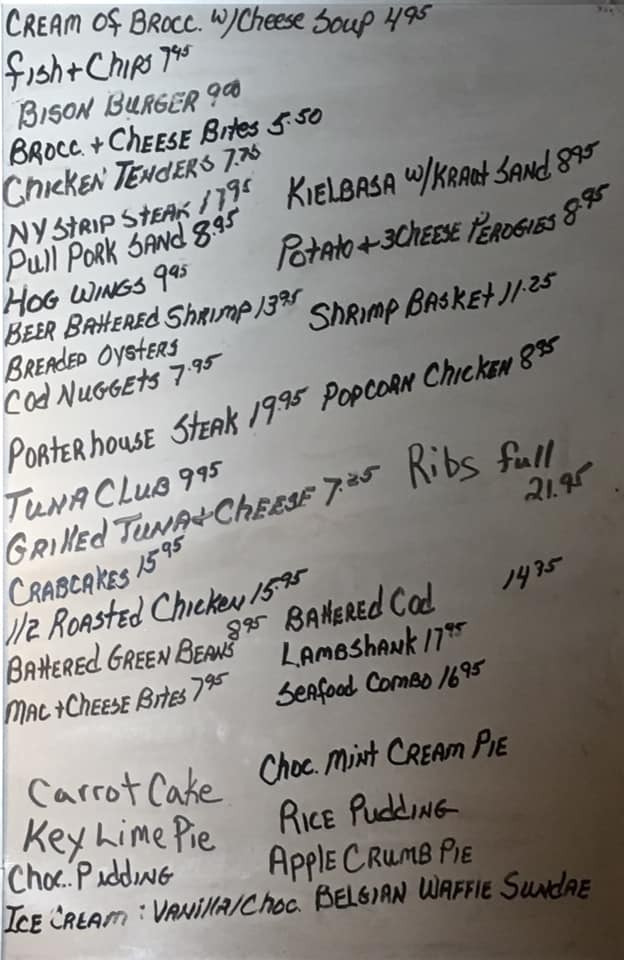 CREAM OF BROCC. W/Cheese Soup 4.95
Fish + Chips 7.95
BISON BURGER 9.00
BROCC. + CHEESE BITES 5.50
CHICKEN TENDERS
NY STRIP STEAK 17.95 KIELBASA W/KRAUT SAND 8.95
Pull PORK SAND 8.95 POTATO + 3CHEESE PEROGIES 8.95
HOG WINGS 9.95
BEER BATTERED SHRIMP 13.95 SHRIMP BASKET 11.25
BREADED OYSTERS
COD NUGGETS 7.95
PORTERHOUSE STEAK 19.95 POPCORN CHICKEN 8.95
TUNA CLUB 9.95
GRILLED TUNA + CHEESE 7.25 Ribs full 21.95
CRABCAKES 15.95
1/2 ROASTED CHICKEN 15.95
BATTERED GREEN BEANS 8.95 BATTERED COD 14.75
MAC + CHEESE BITES 7.95 LAMBSHANK 17.95
SEAFOOD COMBO 16.95
Carrot Cake CHOC. MINT CREAM PIE
Key Lime Pie RICE PUDDING
CHOC. PUDDING APPLE CRUMB PIE
ICE CREAM : VANILLA/CHOC. BELGIAN WAFFLE SUNDAE